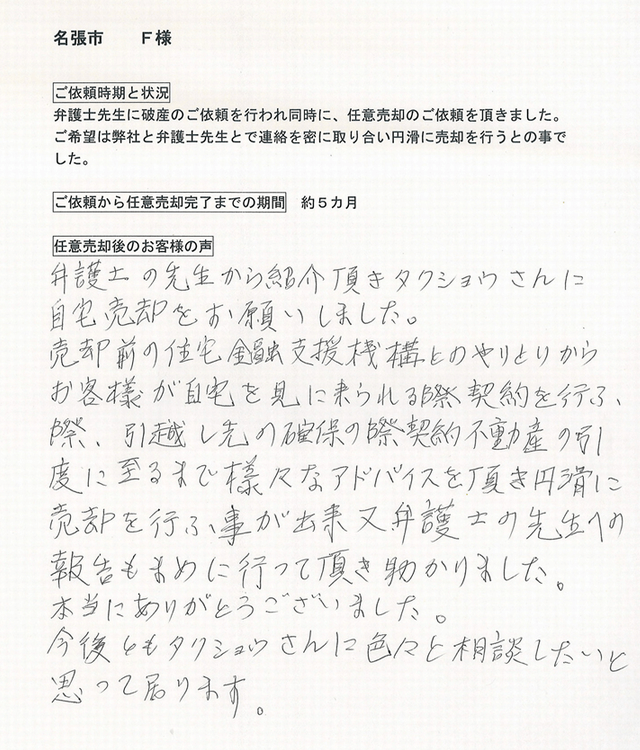 名張市　　F様
ご依頼時期と状況
弁護士先生に破産のご依頼を行われ同時に、任意売却のご依頼を頂きました。
ご希望は弊社と弁護士先生とで連絡を密に取り合い円滑に売却を行うとの事で
した。
ご依頼から任意売却完了までの期間　約５カ月
任意売却後のお客様の声
弁護士の先生から紹介頂きタクショウさんに
自宅売却をお願いしました。
売却前の住宅金融支援機構とのやりとりから
お客様が自宅を見に来られる際契約を行ふ、
際、引越し先の確保の際契約不動産の引
度に至るまで様々なアドバイスを頂き円滑に
売却を行ふ事が出来又弁護士の先生への
報告もまめに行って頂き助かりました。
本当にありがとうございました。
今後ともタクショウさんに色々と相談したいと
思って居ります。